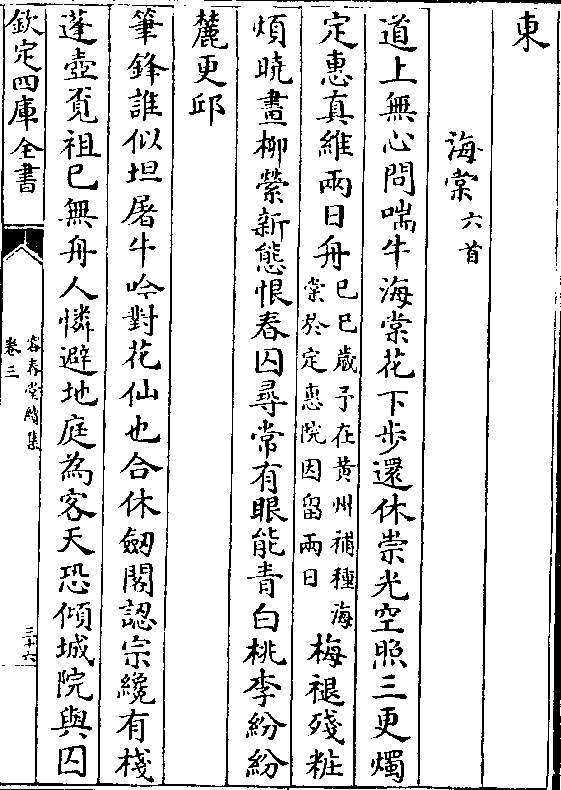 東
海棠六首
道上無心問喘牛海棠花下步還休崇光空照三更燭
定惠真維兩日舟己巳歳予在黄州補種海棠於定惠院因留兩日梅褪殘粧
煩曉畫柳縈新態恨春囚尋常有眼能青白桃李紛紛
麓更邱
筆鋒誰似坦屠牛吟對花仙也合休劒閣認宗纔有棧
蓬壺覔祖已無舟人憐避地庭為客天恐傾城院與囚
欽定四庫全書
容春堂續集
卷三
三十六